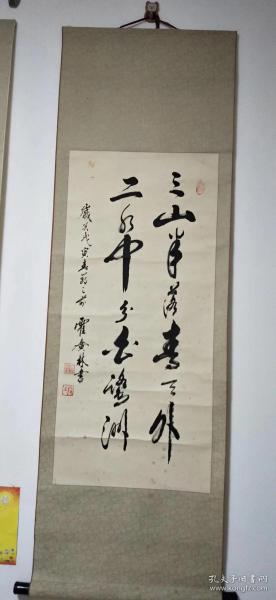 三山半落青天外
二水中分白鹭洲
岁次戊寅春月之吉
霍春林书
孔夫子旧书网